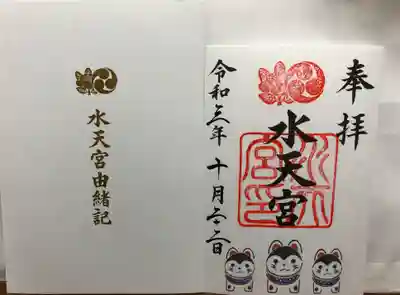 水天宮由緒記
奉拝
水天宮
水天宮印
令和三年十月二十二日